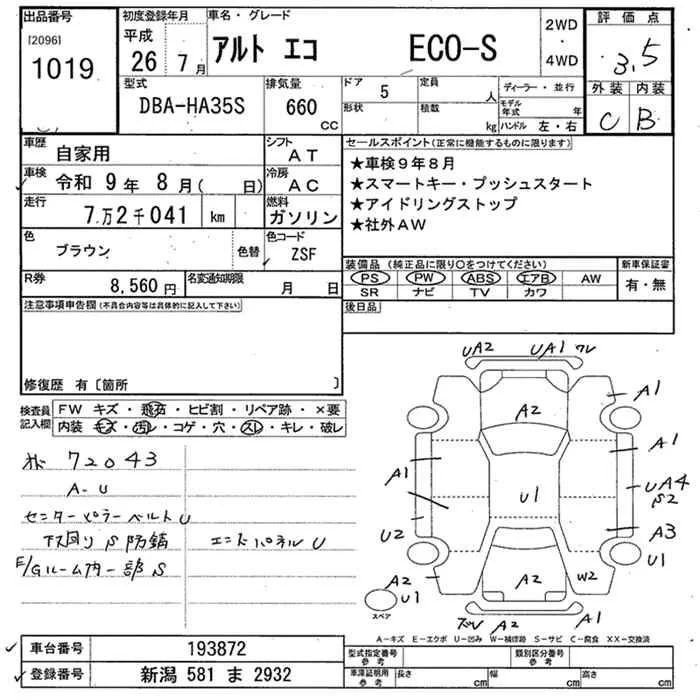 出品番号
[2096]
1019
初度登録年月
平成
26 年 7 月
車名・グレード
アルト エコ ECO-S
2WD
・
4WD
評価点
3.5
外装 内装
C B
型式
DBA-HA35S
排気量
660
CC
ドア
5
定員
人
形状
積載
kg
ディーラー・並行
モデル年式 年
ハンドル 左・右
車歴
自家用
シフト
AT
車検
令和 9年 8月( 日)
冷房
AC
走行
7万2千041 km
燃料
ガソリン
色
ブラウン
色替
色コード
ZSF
R券
8,560 円
名変通知期限
月 日
セールスポイント(正常に機能するものに限ります)
★車検9年8月
★スマートキー・プッシュスタート
★アイドリングストップ
★社外AW
装備品 (純正品に限り○をつけてください)
PS PW ABS エアB AW
SR ナビ TV カワ
新車保証書
有・無
後日品
注意事項申告欄(不具合内容等は具体的に記入して下さい)
修復歴 有〔箇所 〕
検査員記入欄
FW キズ・飛石・ヒビ割・リペア跡・×要
内装 キズ・汚レ・コゲ・穴・スレ・キレ・破レ
72043
A-U
センターピラーベルトU
下回りS防錆
エンドパネルU
E/Gルーム内一部S
UA2 UA1 ワレ
A2
A1
A1
A1
U1
UA4
S2
U2
A3
U1
A2
U1
A2
W2
A2
A1
スペア
A-キズ E-エクボ U-凹み W-補修跡 S-サビ C-腐食 XX-交換済
車台番号
193872
登録番号
新潟 581 ま 2932
型式指定番号
参考
類別区分番号
参考
車庫証明用
参考
長さ cm
幅 cm
高さ cm